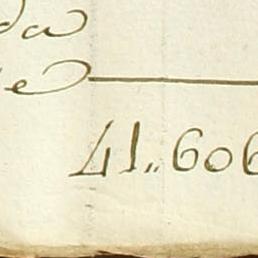 da
e
41,,606